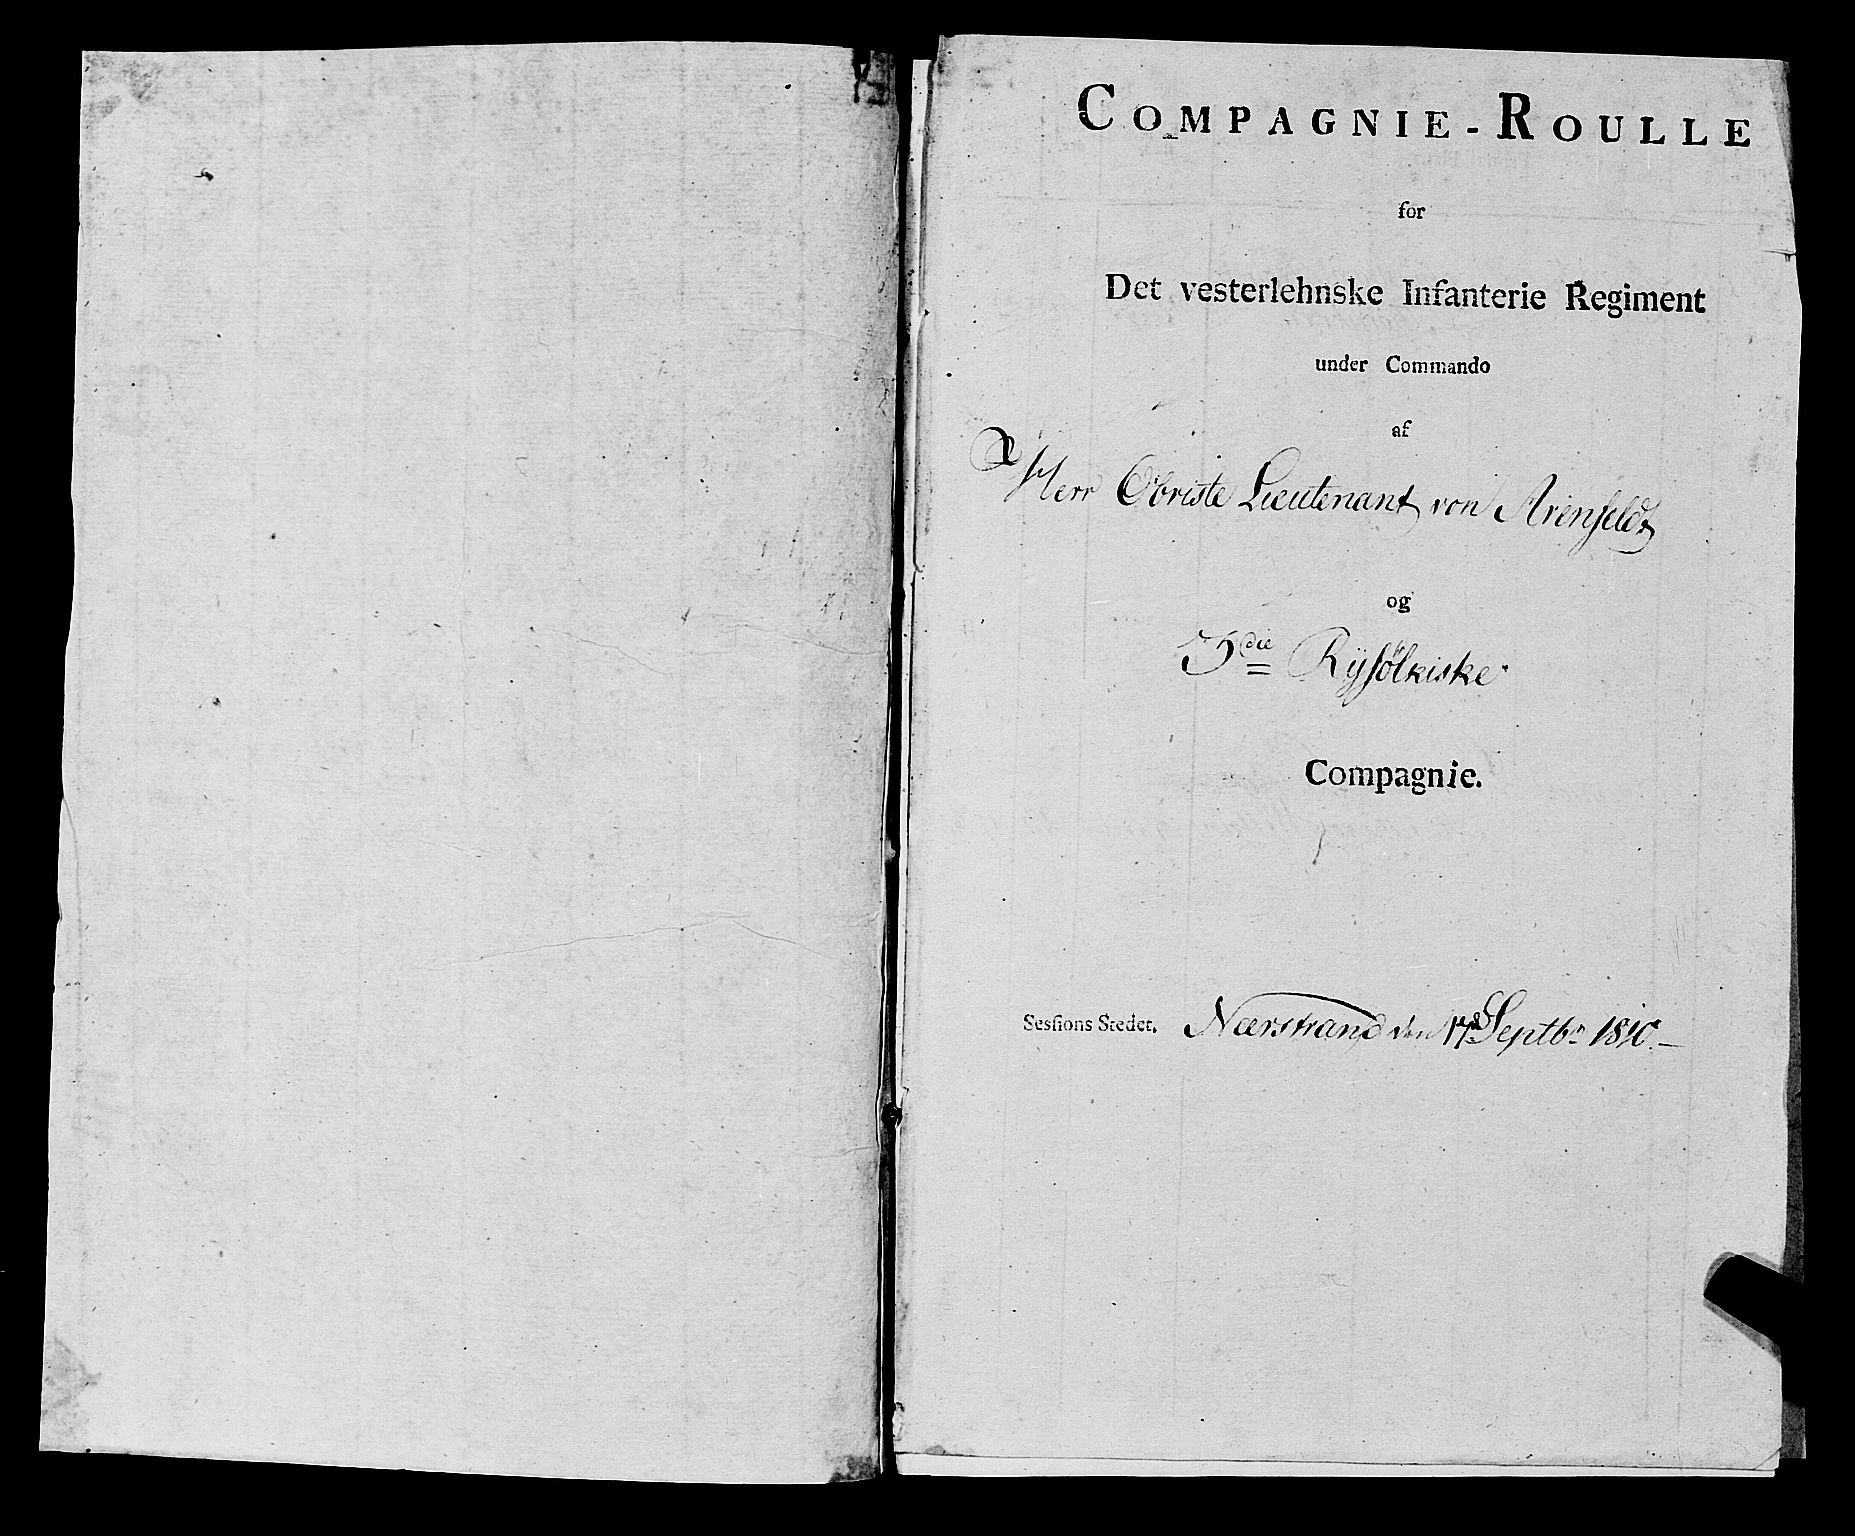 COMPAGNIE-ROULLE
for
Det vesterlehnske Infanterie Regiment
under Commando
af
Herr Obriste Lieutenant von Arenfeldt
og
3die Ryfølkiske
Compagnie.
Sessions Stedet. Nærstrand den 17de Septbr 1810